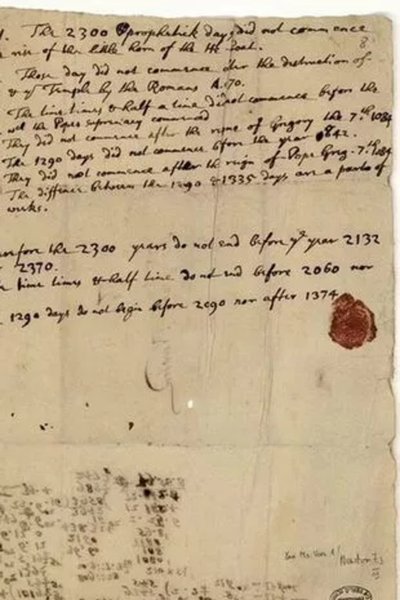 . The 2300 prophetick days did not commence
rise of the little horn of the He Goat.
Those day did not commence after the destruction of
& ye Temple by the Romans A. 70.
The time times & half a time did not commence before the
wch the Popes supremacy commenced
They did not commence after the reigne of Gregory the 7th 1084
The 1290 days did not commence before the year 842.
They did not commence after the reigne of Pope Greg. 7th 1084
The diffence between the 1290 & 1335 days are a parts of
weeks.
erefore the 2300 years do not end before ye year 2132
2370.
time times & half time do not end before 2060 nor
1290 days do not begin before 2090 nor after 1374